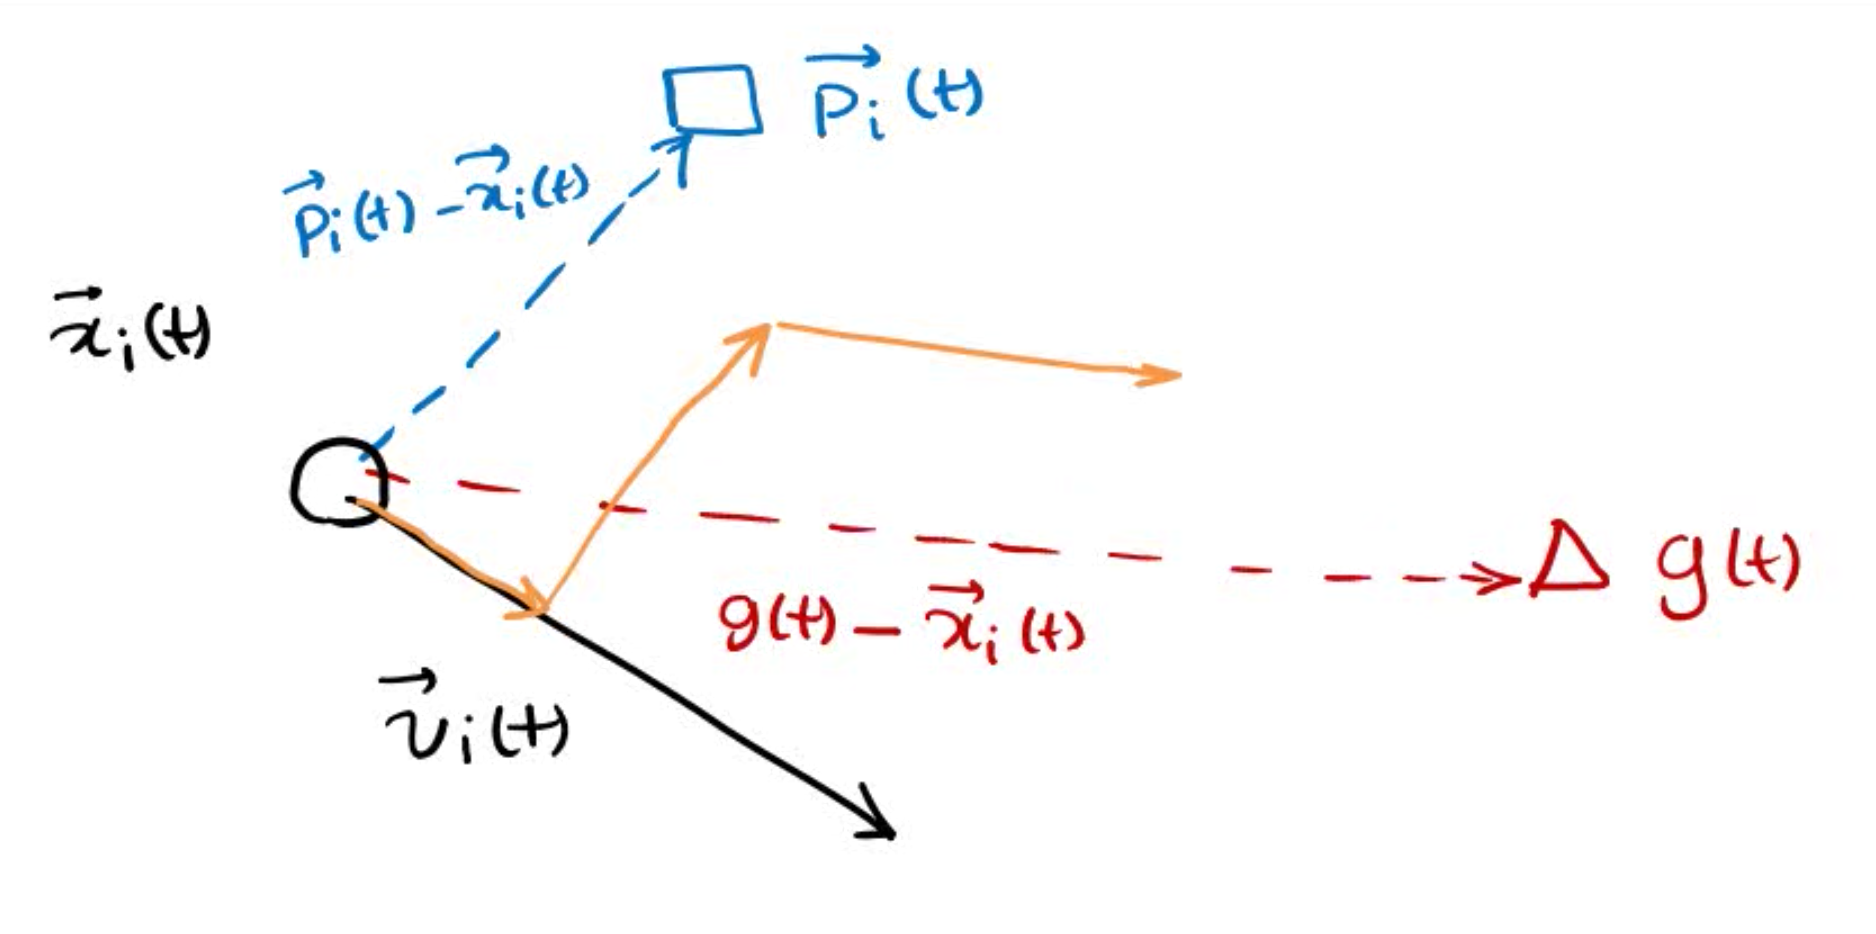 p⃗ᵢ(t)
p⃗ᵢ(t) - x⃗ᵢ(t)
x⃗ᵢ(t)
g(t)
g(t) - x⃗ᵢ(t)
v⃗ᵢ(t)